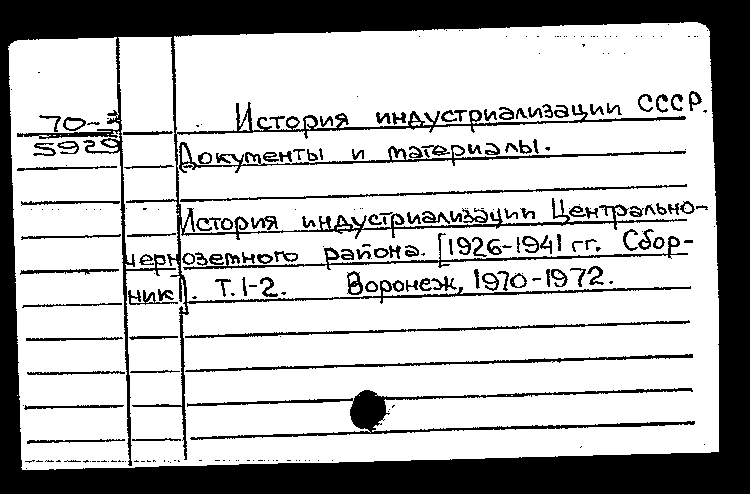 70-
5929
История индустриализации СССР.
Документы и материалы.
История индустриализации Центрально-
черноземного района. [1926-1941 гг. Сбор-
ник]. Т.1-2. Воронеж, 1970-1972.